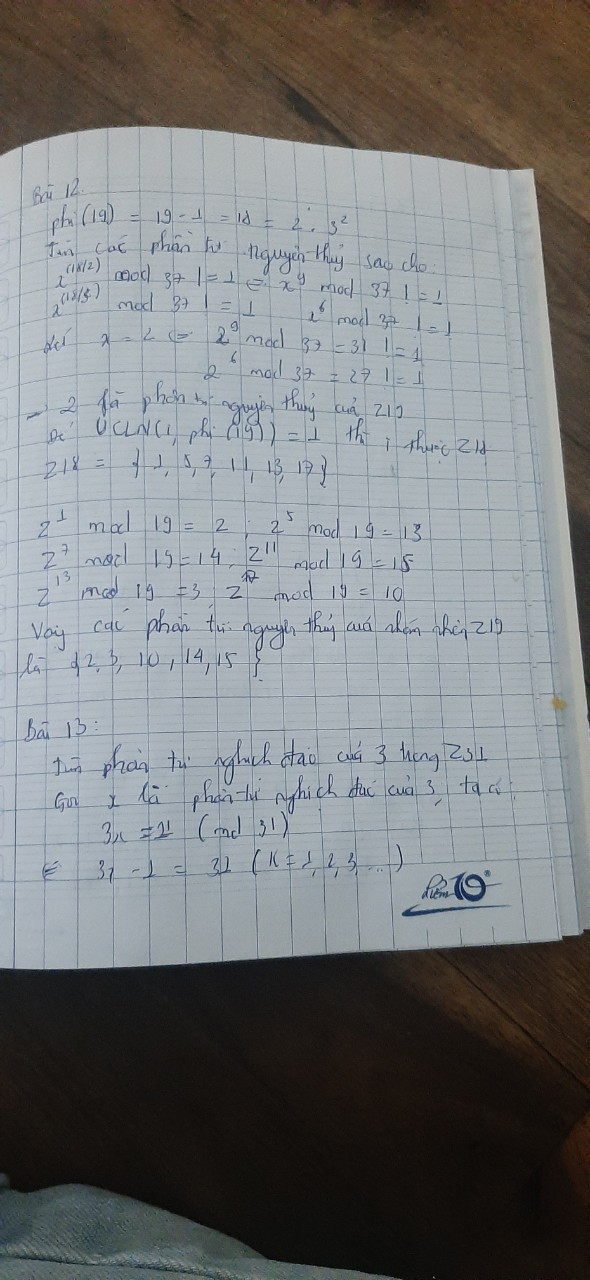 Bài 12
phi(19) = 19 - 1 = 18 = 2 . 3²
Tìm các phần tử nguyên thủy sao cho:
x^(18/2) mod 37 != 1 ⇔ x⁹ mod 37 != 1
x^(18/3) mod 37 != 1 x⁶ mod 37 != 1
x = 2 ⇔ 2⁹ mod 37 = 31 != 1
2⁶ mod 37 = 27 != 1
→ 2 là phần tử nguyên thủy của Z19
UCLN(i, phi(19)) = 1 thì i thuộc Z18
Z18 = { 1, 5, 7, 11, 13, 17}
2¹ mod 19 = 2 ; 2⁵ mod 19 = 13
2⁷ mod 19 = 14 ; 2¹¹ mod 19 = 15
2¹³ mod 19 = 3 2¹⁷ mod 19 = 10
Vậy các phần tử nguyên thủy của nhóm nhân Z19
là {2, 3, 10, 14, 15}
Bài 13:
Tìm phần tử nghịch đảo của 3 trong Z31
Gọi x là phần tử nghịch đảo của 3, ta có:
3x = 1 (mod 31)
⇔ 3x - 1 = 31 (K = 1, 2, 3, ...)
Điểm 10